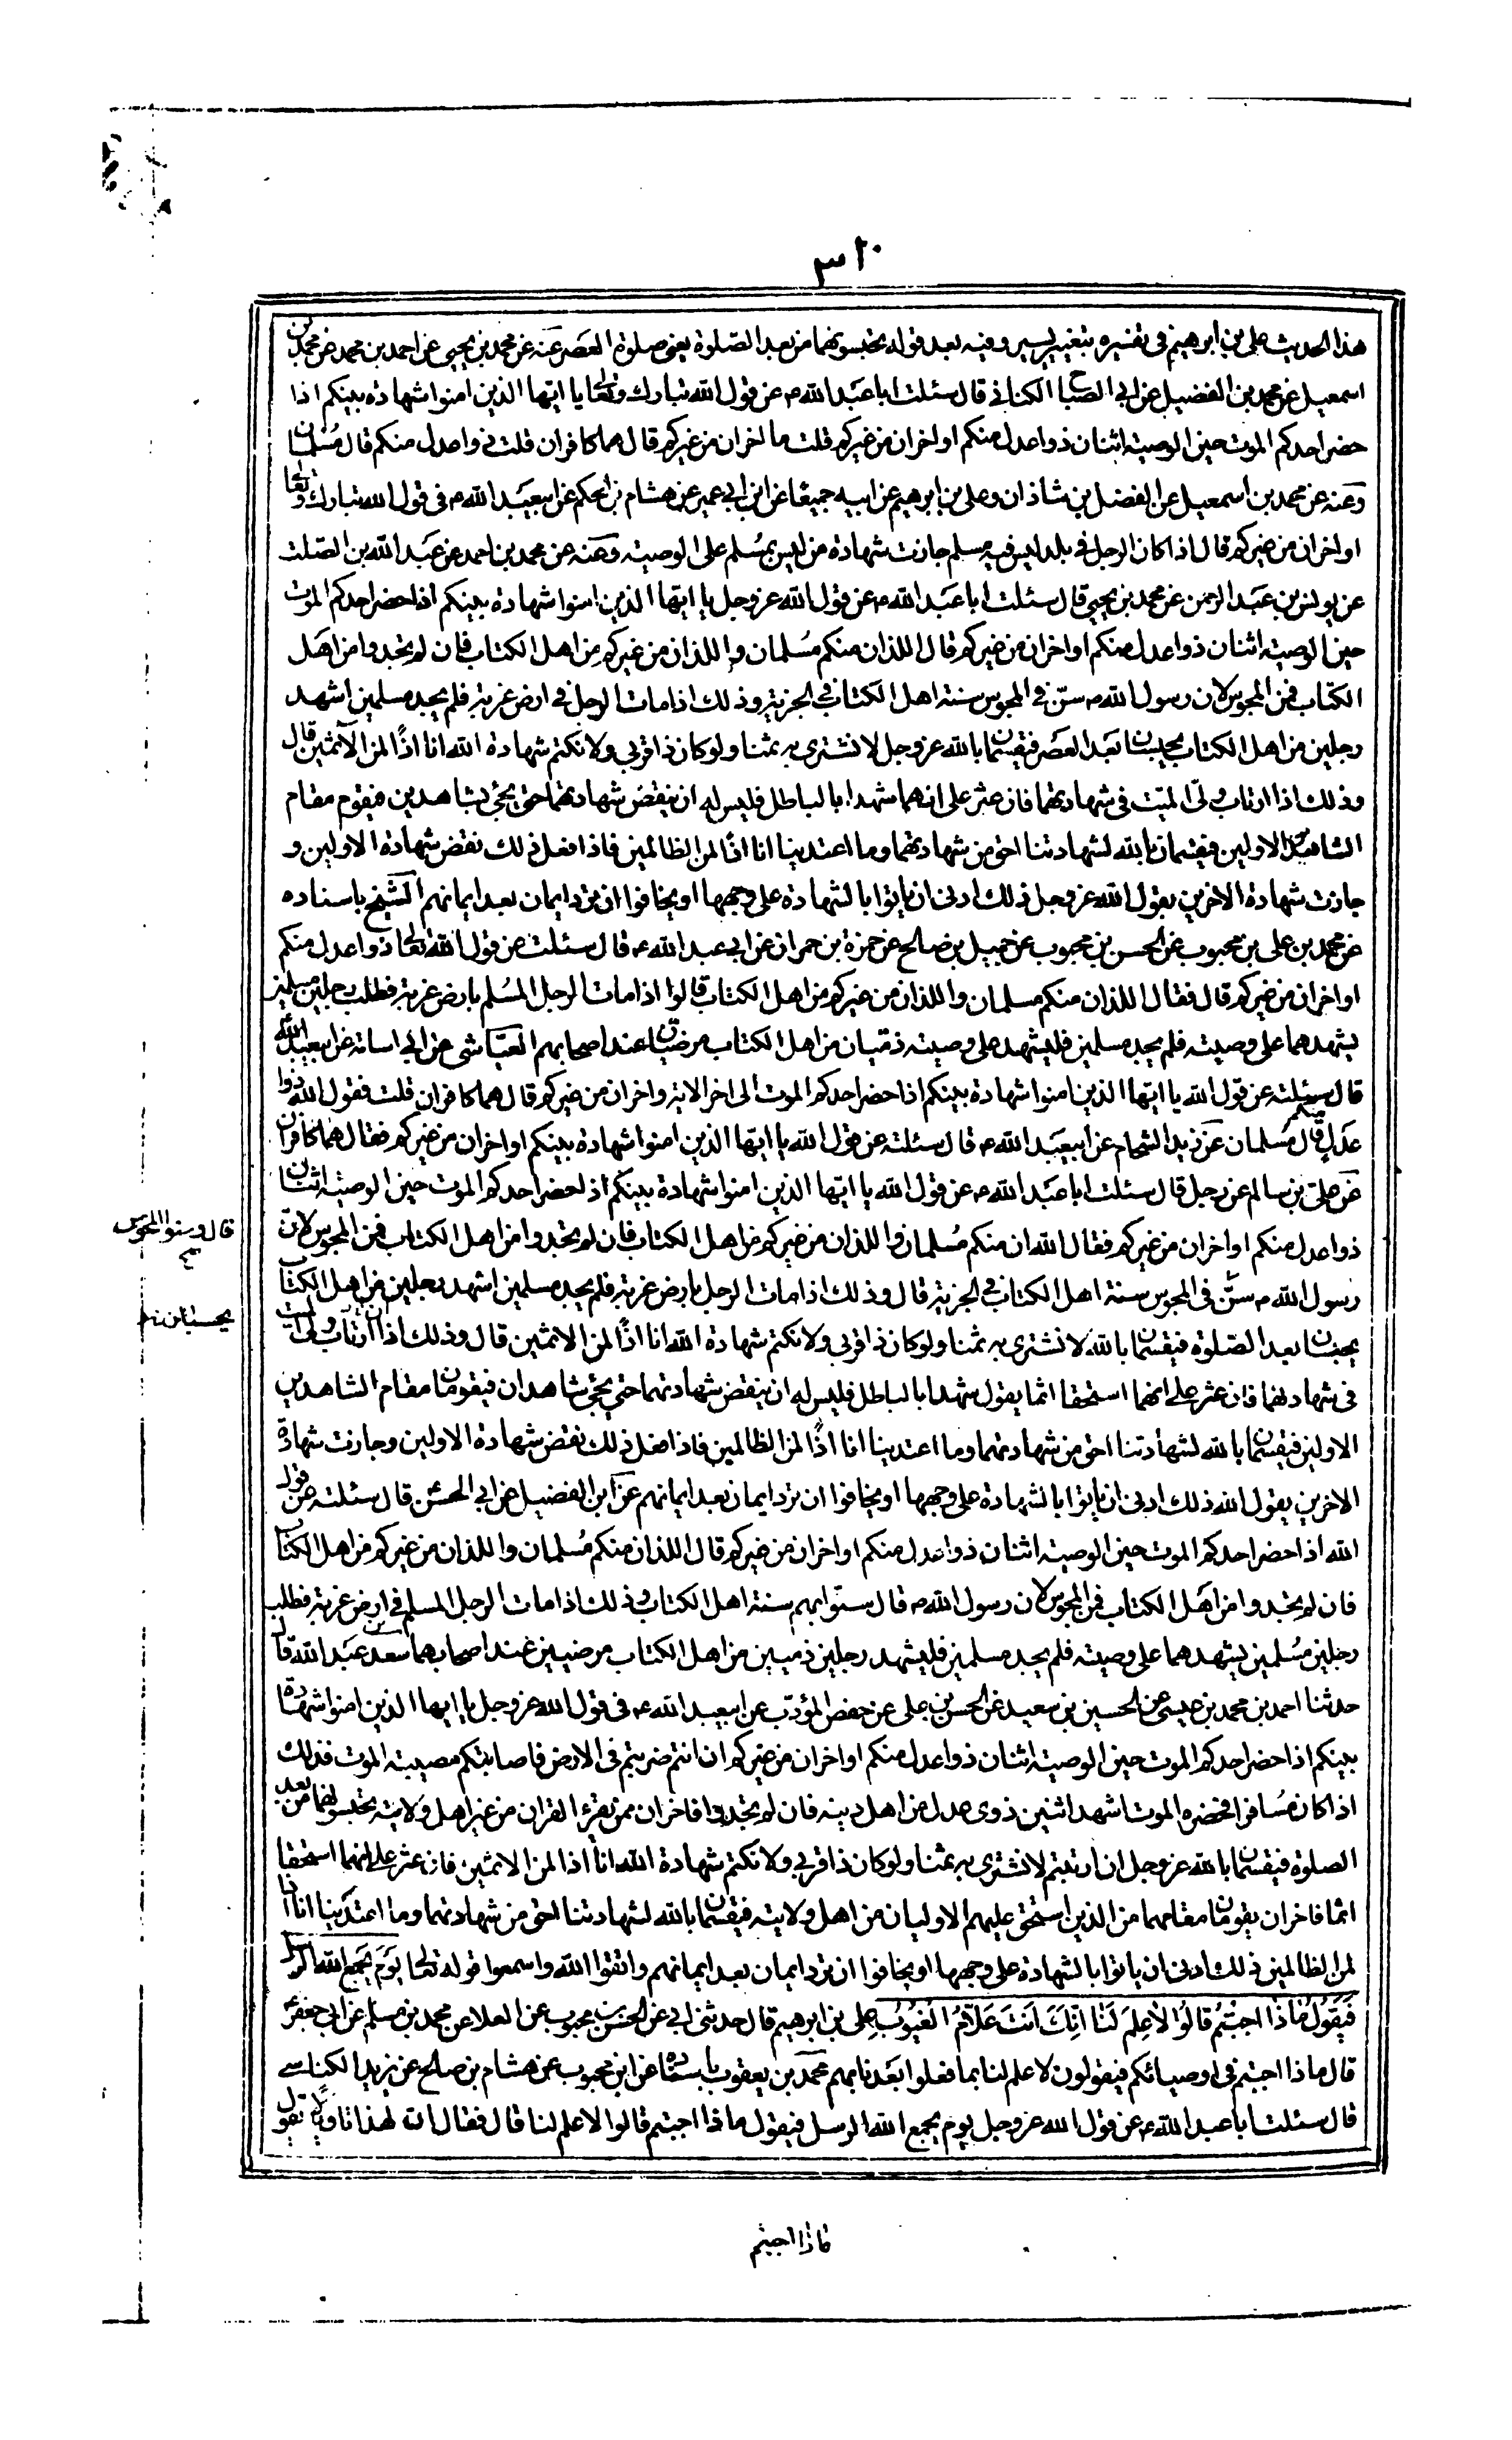 ٣٢٠
هذا الحديث على بن ابرهيم فى تفسيره بتغيير يسير وفيه بعد قوله تحبسونهما من بعد الصّلوة يعنى صلوة العصر عنه عن محمد بن يحيى عن احمد بن محمد عن محمد بن
اسمعيل عن محمد بن الفضيل عن ابى الصباح الكنانى قال سئلت ابا عبد الله ع عن قول الله تبارك وتعالى يا ايّها الذين امنوا شهادة بينكم اذا
حضر احدكم الموت حين الوصية اثنان ذوا عدل منكم او اخران من غيركم قلت ما اخران من غيركم قال هما كافران قلت ذوا عدل منكم قال مسلمان
وعنه عن محمد بن اسمعيل عن الفضل بن شاذان وعلى بن ابرهيم عن ابيه جميعًا عن ابن ابى عمير عن هشام بن الحكم عن ابيعبد الله ع فى قول الله تبارك وتعالى
او اخران من غيركم قال اذا كان الرجل فى بلد ليس فيه مسلم جازت شهادة من ليس بمسلم على الوصية وعنه عن محمد بن احمد عن عبد الله بن الصّلت
عن يونس بن عبد الرحمن عن محمد بن يحيى قال سئلت ابا عبد الله ع عن قول الله عز وجل يا ايّها الذين امنوا شهادة بينكم اذا حضر احدكم الموت
حين الوصية اثنان ذوا عدل منكم او اخران من غيركم قال اللذان منكم مسلمان واللذان من غيركم من اهل الكتاب فان لم تجدوا من اهل
الكتاب فمن المجوس لان رسول الله ص سنّ فى المجوس سنة اهل الكتاب فى الجزية وذلك اذا مات الرجل فى ارض غربة فلم يجد مسلمين اشهد
رجلين من اهل الكتاب يحبسان بعد العصر فيقسمان بالله عز وجل لا نشترى به ثمنا ولو كان ذا قربى ولا نكتم شهادة الله انا اذًا لمن الآثمين قال
وذلك اذا ارتاب ولىّ الميّت فى شهادتهما فان عثر على انهما شهدا بالباطل فليس له ان ينقض شهادتهما حتى يجئ بشاهدين فيقوم مقام
الشاهدين الاولين فيقسمان بالله لشهادتنا احق من شهادتهما وما اعتدينا انا اذًا لمن الظالمين فاذا فعل ذلك نقض شهادة الاولين و
جازت شهادة الاخرين يقول الله عز وجل ذلك ادنى ان ياتوا بالشهادة على وجهها او يخافوا ان ترد ايمان بعد ايمانهم الشيخ باسناده
عن محمد بن على بن محبوب عن الحسن بن محبوب عن جميل بن صالح عن حمزة بن حمران عن ابى عبد الله ع قال سئلت عن قول الله تعالى ذوا عدل منكم
او اخران من غيركم قال فقال اللذان منكم مسلمان واللذان من غيركم من اهل الكتاب قالوا اذا مات الرجل المسلم بارض غربة فطلب رجلين مسلمين
يشهدهما على وصيته فلم يجد مسلمين فليشهد على وصيته ذمّيان من اهل الكتاب مرضيان عند اصحابهم العيّاشى عن ابى اسامة عن ابيعبد الله
قال سئلته عن قول الله يا ايّها الذين امنوا شهادة بينكم اذا حضر احدكم الموت الى اخر الاية واخران من غيركم قال هما كافران قلت فقول الله ذوا
عدل منكم قال مسلمان عن زيد الشحام عن ابيعبد الله ع قال سئلته عن قول الله يا ايّها الذين امنوا شهادة بينكم او اخران من غيركم فقال هما كافران
عن على بن سالم عن رجل قال سئلت ابا عبد الله ع عن قول الله يا ايّها الذين امنوا شهادة بينكم اذا حضر احدكم الموت حين الوصية اثنان
ذوا عدل منكم او اخران من غيركم فقال الله ان منكم مسلمان واللذان من غيركم من اهل الكتاب فان لم تجدوا من اهل الكتاب فمن المجوس لانّ
قال وسنوا المجوس
رسول الله ص سنّ فى المجوس سنة اهل الكتاب فى الجزية قال وذلك اذا مات الرجل بارض غربة فلم يجد مسلمين اشهد رجلين من اهل الكتاب
يحبسان بعد الصّلوة فيقسمان بالله لا نشترى به ثمنا ولو كان ذا قربى ولا نكتم شهادة الله انا اذًا لمن الاثمين قال وذلك اذا ارتاب ولى الميت
فى شهادتهما فان عثر على انهما استحقا اثما يقول شهدا بالباطل فليس له ان ينقض شهادتهما حتى يجئ شاهدان فيقومان مقام الشاهدين
الاولين فيقسمان بالله لشهادتنا احق من شهادتهما وما اعتدينا انا اذًا لمن الظالمين فاذا فعل ذلك نقض شهادة الاولين وجازت شهادة
الاخرين يقول الله ذلك ادنى ان ياتوا بالشهادة على وجهها او يخافوا ان ترد ايمان بعد ايمانهم عن ابن الفضيل عن ابى الحسن قال سئلته عن قول
الله اذا حضر احدكم الموت حين الوصية اثنان ذوا عدل منكم او اخران من غيركم قال اللذان منكم مسلمان واللذان من غيركم من اهل الكتاب
فان لم تجدوا من اهل الكتاب فمن المجوس لان رسول الله ص قال سنّوا بهم سنة اهل الكتاب وذلك اذا مات الرجل المسلم فى ارض غربة فطلب
رجلين مسلمين يشهدهما على وصيته فلم يجد مسلمين فليشهد رجلين ذميين من اهل الكتاب مرضيين عند اصحابهما سعد بن عبد الله قال
حدثنا احمد بن محمد بن عيسى عن الحسين بن سعيد عن الحسن بن على عن حفص المؤدّب عن ابيعبد الله ع فى قول الله عز وجل يا ايها الذين امنوا شهادة
بينكم اذا حضر احدكم الموت حين الوصية اثنان ذوا عدل منكم او اخران من غيركم ان انتم ضربتم فى الارض فاصابتكم مصيبة الموت فذلك
اذا كان مسافرا فحضره الموت اشهد اثنين ذوى عدل من اهل دينه فان لم يجدوا فاخران ممن يقرء القران من غير اهل ولايته تحبسونهما من بعد
الصلوة فيقسمان بالله عز وجل ان ارتبتم لا نشترى به ثمنا ولو كان ذا قربى ولا نكتم شهادة الله انا اذا لمن الاثمين فان عثر على انهما استحقا
اثما فاخران يقومان مقامهما من الذين استحق عليهم الاوليان من اهل ولايته فيقسمان بالله لشهادتنا احق من شهادتهما وما اعتدينا انا اذا
لمن الظالمين ذلك ادنى ان ياتوا بالشهادة على وجهها او يخافوا ان ترد ايمان بعد ايمانهم واتقوا الله واسمعوا قوله تعالى يَوْمَ يَجْمَعُ اللهُ الرُّسُلَ
فَيَقُولُ مَاذَا اُجِبْتُمْ قَالُوا لَا عِلْمَ لَنَا اِنَّكَ اَنْتَ عَلَّامُ الْغُيُوبِ على بن ابرهيم قال حدثنى ابى عن الحسن بن محبوب عن العلا عن محمد بن مسلم عن ابى جعفر ع
قال ماذا اجبتم فى اوصيائكم فيقولون لا علم لنا بما فعلوا بعدنا بهم محمد بن يعقوب باسناده عن ابن محبوب عن هشام بن صالح عن يزيد الكناسى
قال سئلت ابا عبد الله ع عن قول الله عز وجل يوم يجمع الله الرسل فيقول ماذا اجبتم قالوا لا علم لنا قال فقال ان لهذا تاويلا يقول
ماذا اجبتم